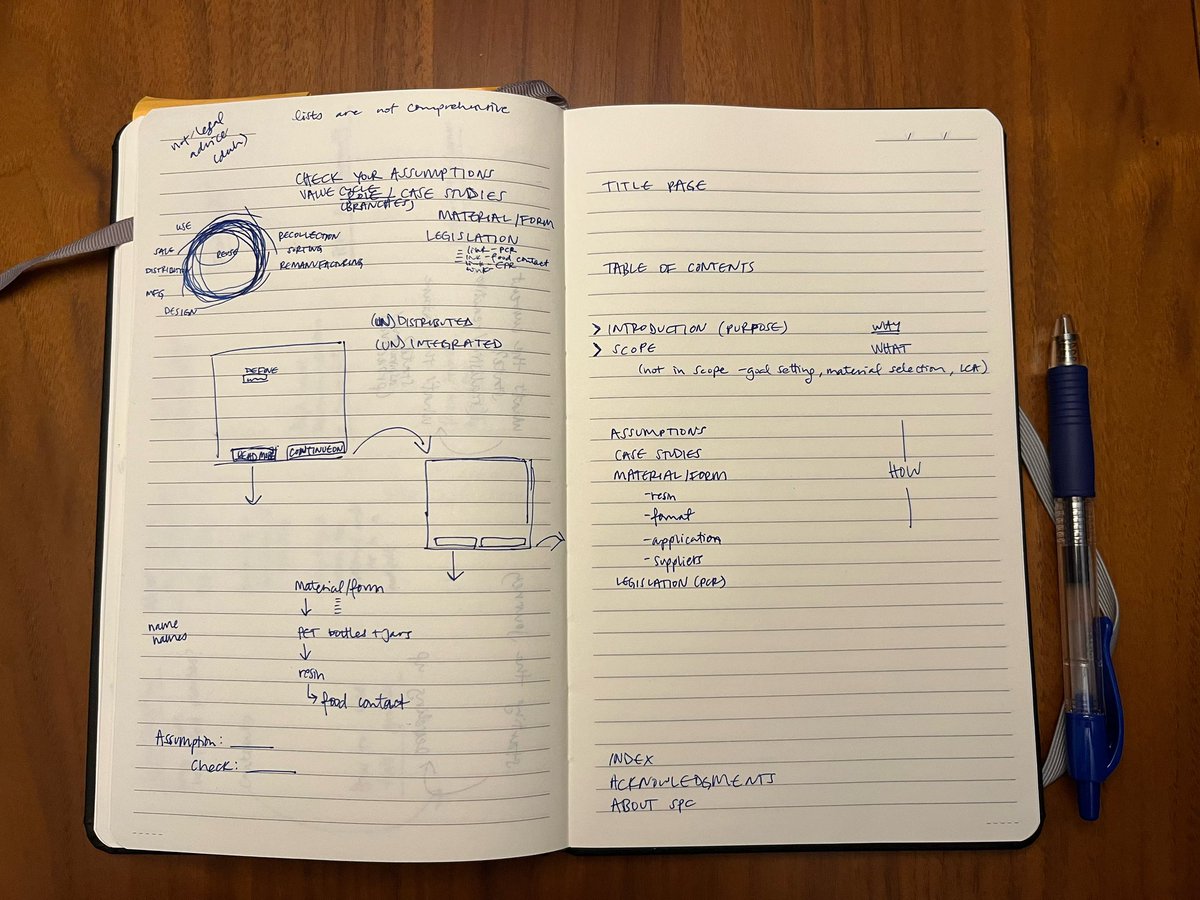 not legal
advice
(duh)
lists are not comprehensive
CHECK YOUR ASSUMPTIONS
VALUE CYCLE
ROLE / CASE STUDIES
(BRANCHES)
MATERIAL/FORM
LEGISLATION
link - PCR
link - food contact
link - EPR
USE
SALE
DISTRIBUTE
MFG
DESIGN
REUSE
RECOLLECTION
SORTING
REMANUFACTURING
(UN)DISTRIBUTED
(UN)INTEGRATED
DEFINE
READ MORE
CONTINUE ON
Material/form
PET bottles + jars
resin
food contact
name
names
Assumption:
Check:
TITLE PAGE
TABLE OF CONTENTS
> INTRODUCTION (PURPOSE) WHY
> SCOPE WHAT
(not in scope - goal setting, material selection, LCA)
ASSUMPTIONS
CASE STUDIES
MATERIAL/FORM HOW
- resin
- format
- application
- suppliers
LEGISLATION (PCR)
INDEX
ACKNOWLEDGMENTS
ABOUT SPC